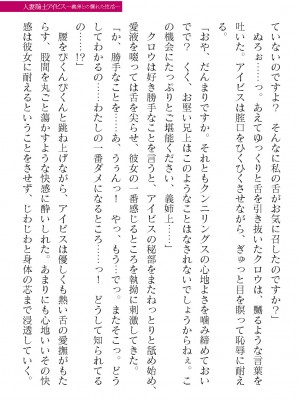 人妻騎士アイビス～義弟との爛れた性活～
ていないのですよ？　そんなに私の舌がお気に召したのですか」
　ぬるぉ……っ。あえてゆっくりと舌を引き抜いたクロウは、嬲るような言葉を
吐いた。アイビスは膣口をひくひくさせながら、ぎゅっと目を瞑って恥辱に耐え
る。
「おや、だんまりですか。それともクンニリングスの心地よさを噛み締めておい
でで？　くく、お堅い兄上はこのようなことはなされないでしょうからねぇ。こ
の機会にたっぷりとご堪能ください、義姉上」
　クロウは好き勝手なことを言うと、アイビスの秘部をまたねっとりと舐め始め、
愛液を啜っては舌を尖らせ、彼女の一番感じるところを執拗に刺激してきた。
「か、勝手なことを……あ、うぁんっ！　やっ、もう……でっ。またそこっ。どう
してわかるの……わたしの一番ダメになるところ……っ！　どうして知られてる
の……!?」
　腰をぴくんぴくんと跳ね上げながら、アイビスは優しくも熱い舌の愛撫がもた
らす、股間を丸ごと蕩かすような快感に酔いしれた。あまりにも心地いいその快
感は彼女に耐えるということをさせず、じわじわと身体の芯まで浸透していく。